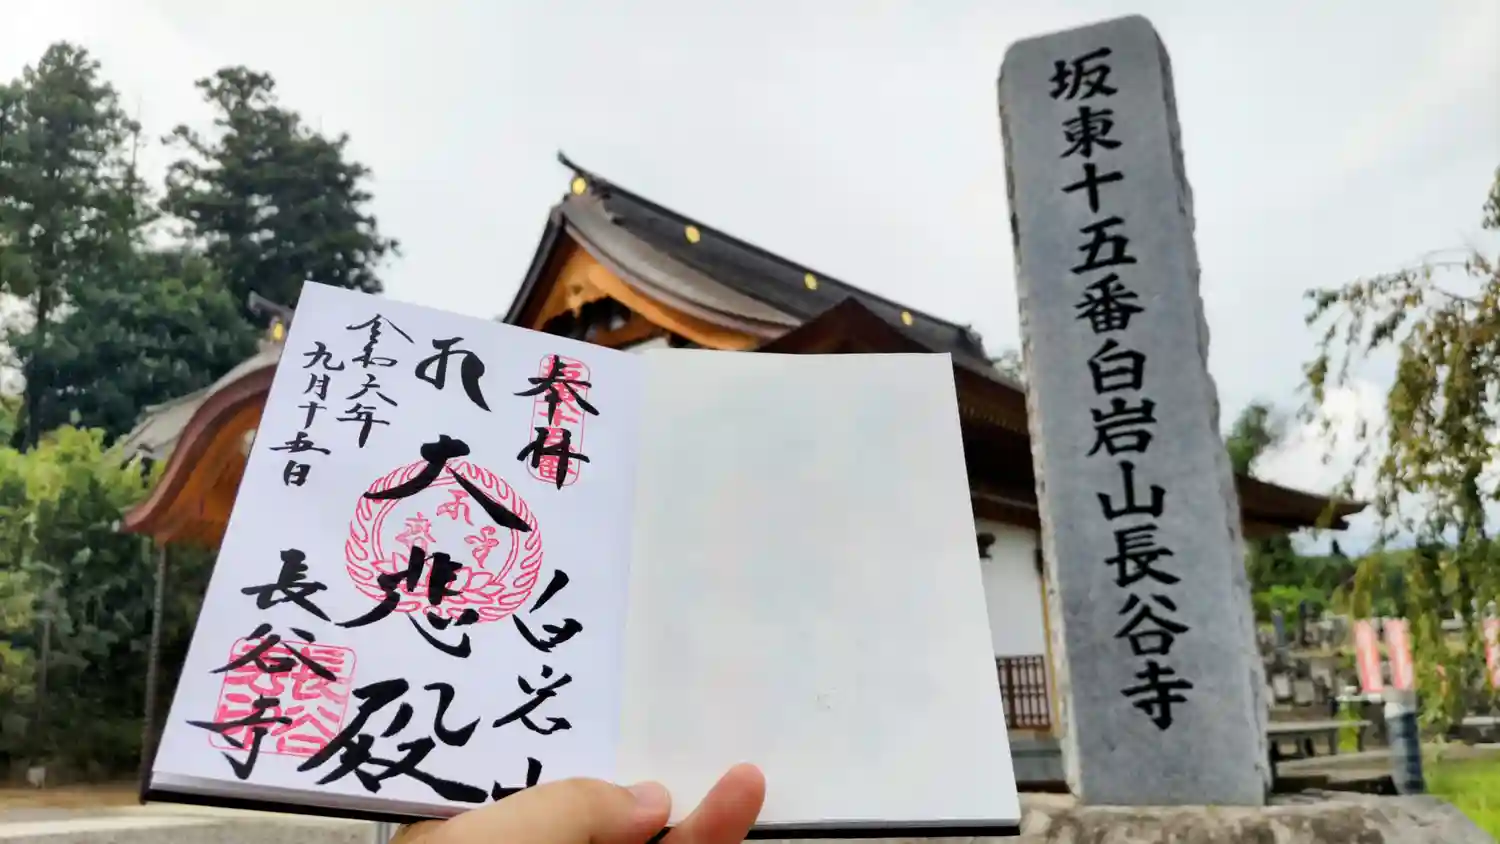 坂東十五番白岩山長谷寺
奉拝
白岩山
大悲殿
令和六年
九月十五日
長谷寺